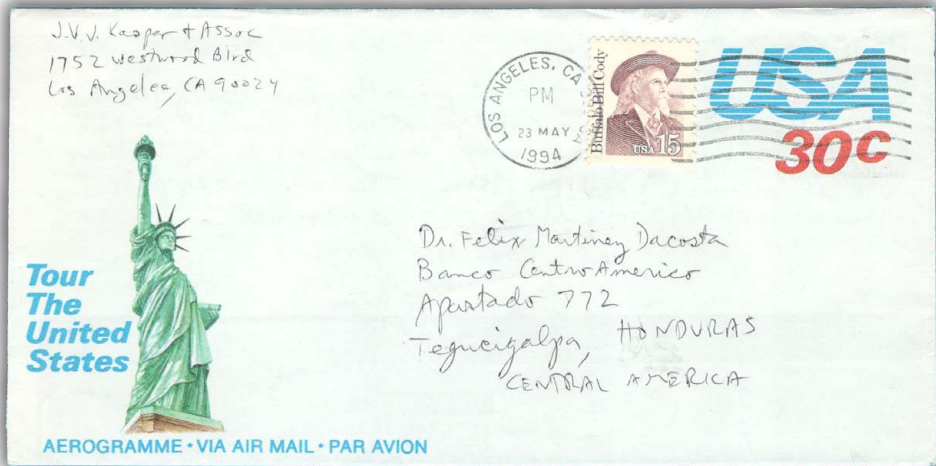 J.V.J. Kasper + Assoc
1752 Westwood Blvd
Los Angeles, CA 90024
LOS ANGELES, CA
PM
23 MAY
1994
Buffalo Bill Cody
USA 15
USA
30c
Dr. Felix Martinez Dacosta
Banco CentroAmerico
Apartado 772
Tegucigalpa, HONDURAS
CENTRAL AMERICA
Tour
The
United
States
AEROGRAMME • VIA AIR MAIL • PAR AVION